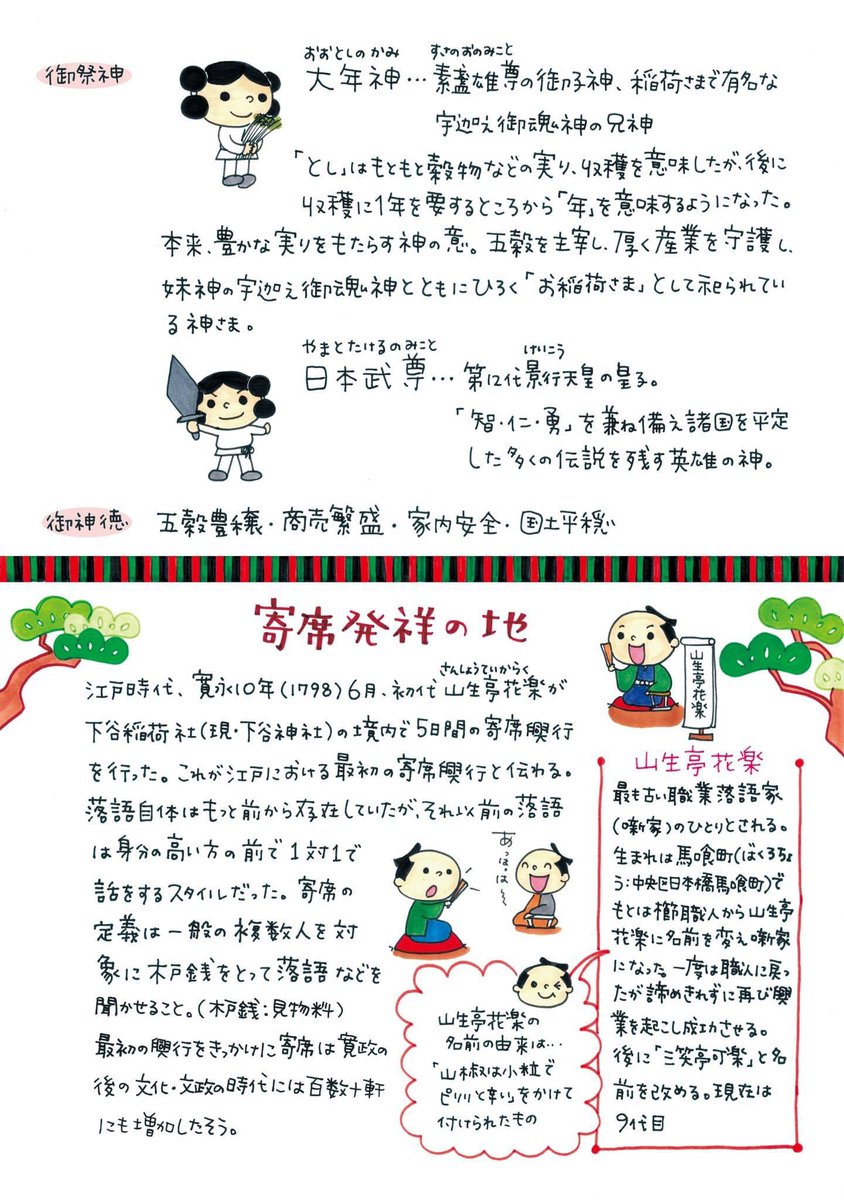 御祭神
おおとしのかみ すさのおのみこと
大年神… 素盞雄尊の御子神、稲荷さまで有名な
宇迦之御魂神の兄神
「とし」はもともと穀物などの実り、収穫を意味したが、後に
収穫に1年を要するところから「年」を意味するようになった。
本来、豊かな実りをもたらす神の意。五穀を主宰し、厚く産業を守護し、
妹神の宇迦之御魂神とともにひろく「お稲荷さま」として祀られてい
る神さま。
やまとたけるのみこと けいこう
日本武尊… 第12代景行天皇の皇子。
「智・仁・勇」を兼ね備え諸国を平定
した多くの伝説を残す英雄の神。
御神徳 五穀豊穣・商売繁盛・家内安全・国土平穏
寄席発祥の地
さんしょうていからく
江戸時代、寛永10年(1798)6月、初代 山生亭花楽が
下谷稲荷社(現・下谷神社)の境内で5日間の寄席興行
を行った。これが江戸における最初の寄席興行と伝わる。
落語自体はもっと前から存在していたが、それ以前の落語
は身分の高い方の前で1対1で
話をするスタイルだった。寄席の
定義は一般の複数人を対
象に木戸銭をとって落語などを
聞かせること。(木戸銭:見物料)
最初の興行をきっかけに寄席は寛政の
後の文化・文政の時代には百数十軒
にも増加したそう。
あっはっはっは〜
山生亭花楽の
名前の由来は…
「山椒は小粒で
ピリリと辛い」をかけて
付けられたもの
山生亭花楽
山生亭花楽
最も古い職業落語家
(噺家)のひとりとされる。
生まれは馬喰町(ばくろちょ
う:中央区日本橋馬喰町)で
もとは櫛職人から山生亭
花楽に名前を変え噺家
になった。一度は職人に戻っ
たが諦めきれずに再び興
業を起こし成功させる。
後に「三笑亭可楽」と名
前を改める。現在は
9代目